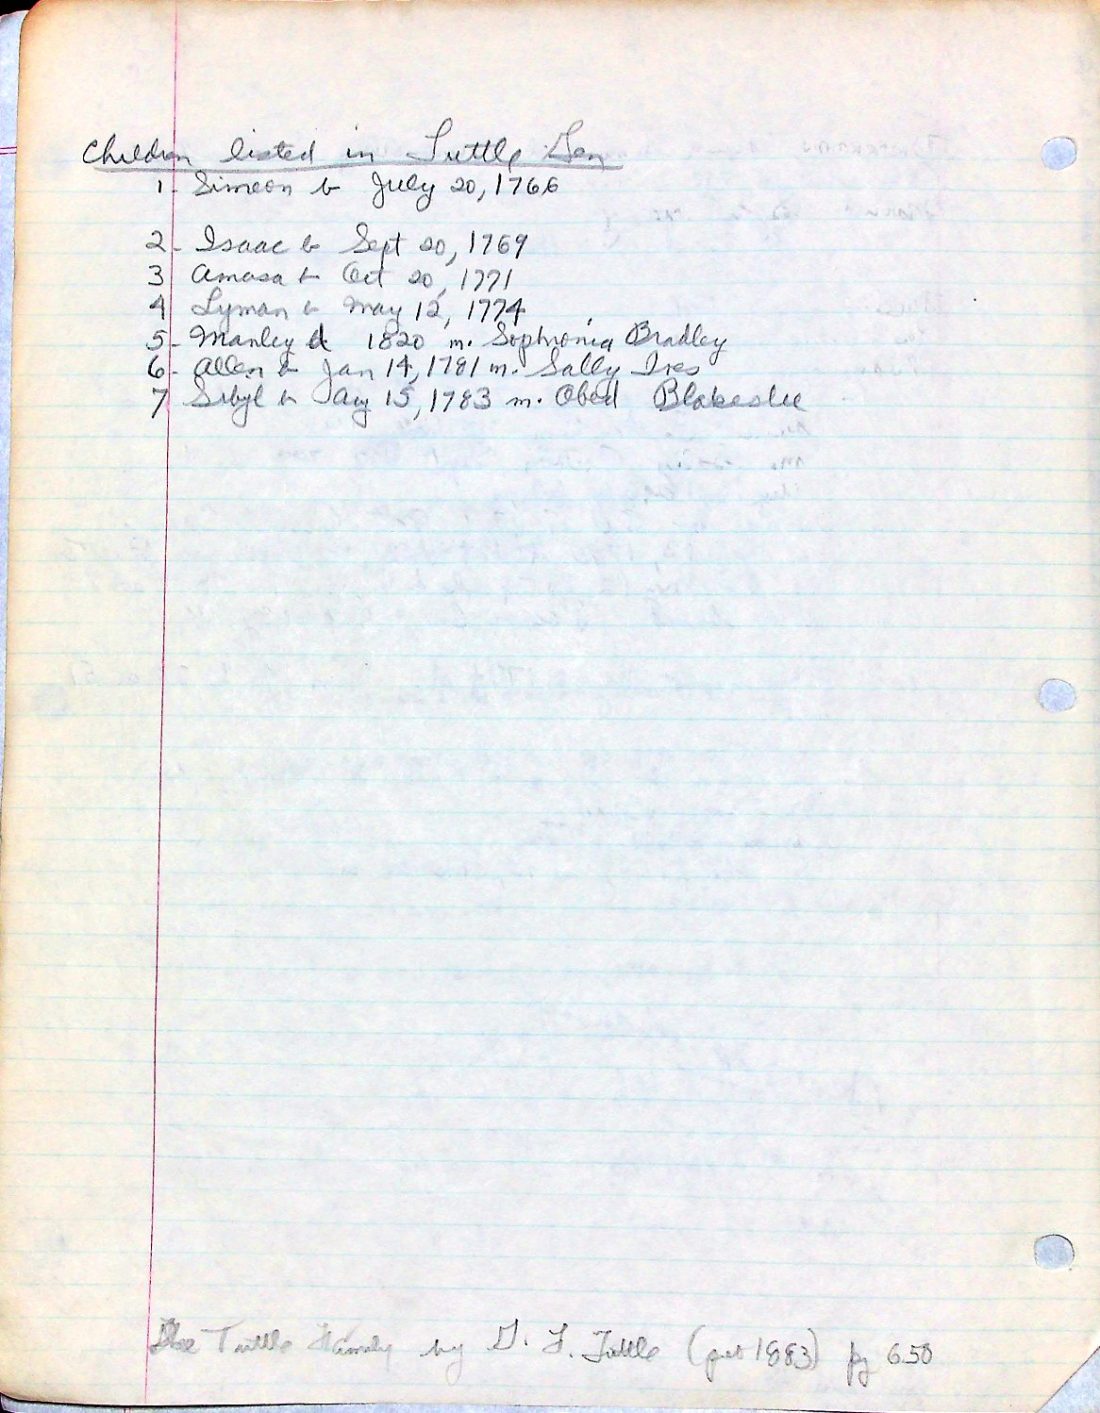 Children listed in Tuttle Gen
1- Simeon b July 20, 1766
2- Isaac b Sept 20, 1769
3 Amasa b Oct 20, 1771
4 Lyman b May 12, 1774
5- Manley d 1820 m. Sophronia Bradley
6- Allen b Jan 14, 1781 m. Sally Ives
7 Sibyl b Aug 15, 1783 m. Obed Blakeslee
The Tuttle Family by G. F. Tuttle (pub 1883) pg 650